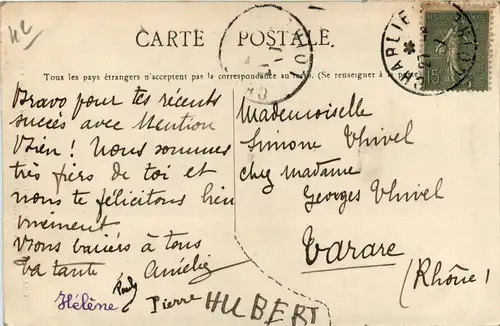 42
CARTE POSTALE.
Tous les pays étrangers n'acceptent pas la correspondance au recto. (Se renseigner à la poste)
Bravo pour tes récents
succès avec Mention
Bien! Nous sommes
très fiers de toi et
nous te félicitons bien
vivement
Bons baisers à tous
Ta tante Amélie
Hélène Pauly Pierre HUBERT
Mademoiselle
Simone Thivel
chez Madame
Georges Thivel
Tarare
(Rhône)
CHARLIEU
15c